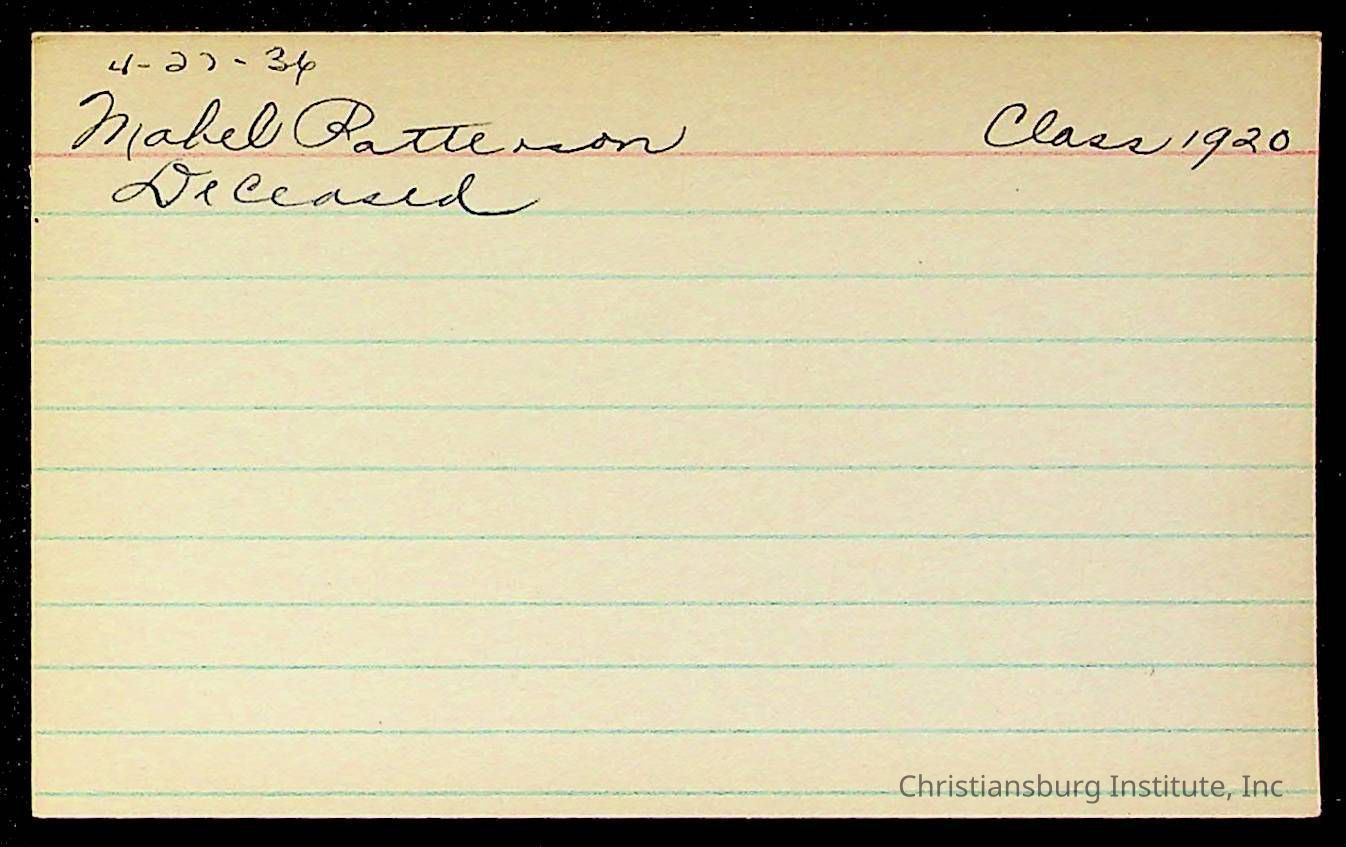 4-27-36
Mabel Patterson Class 1920
Deceased
Christiansburg Institute, Inc